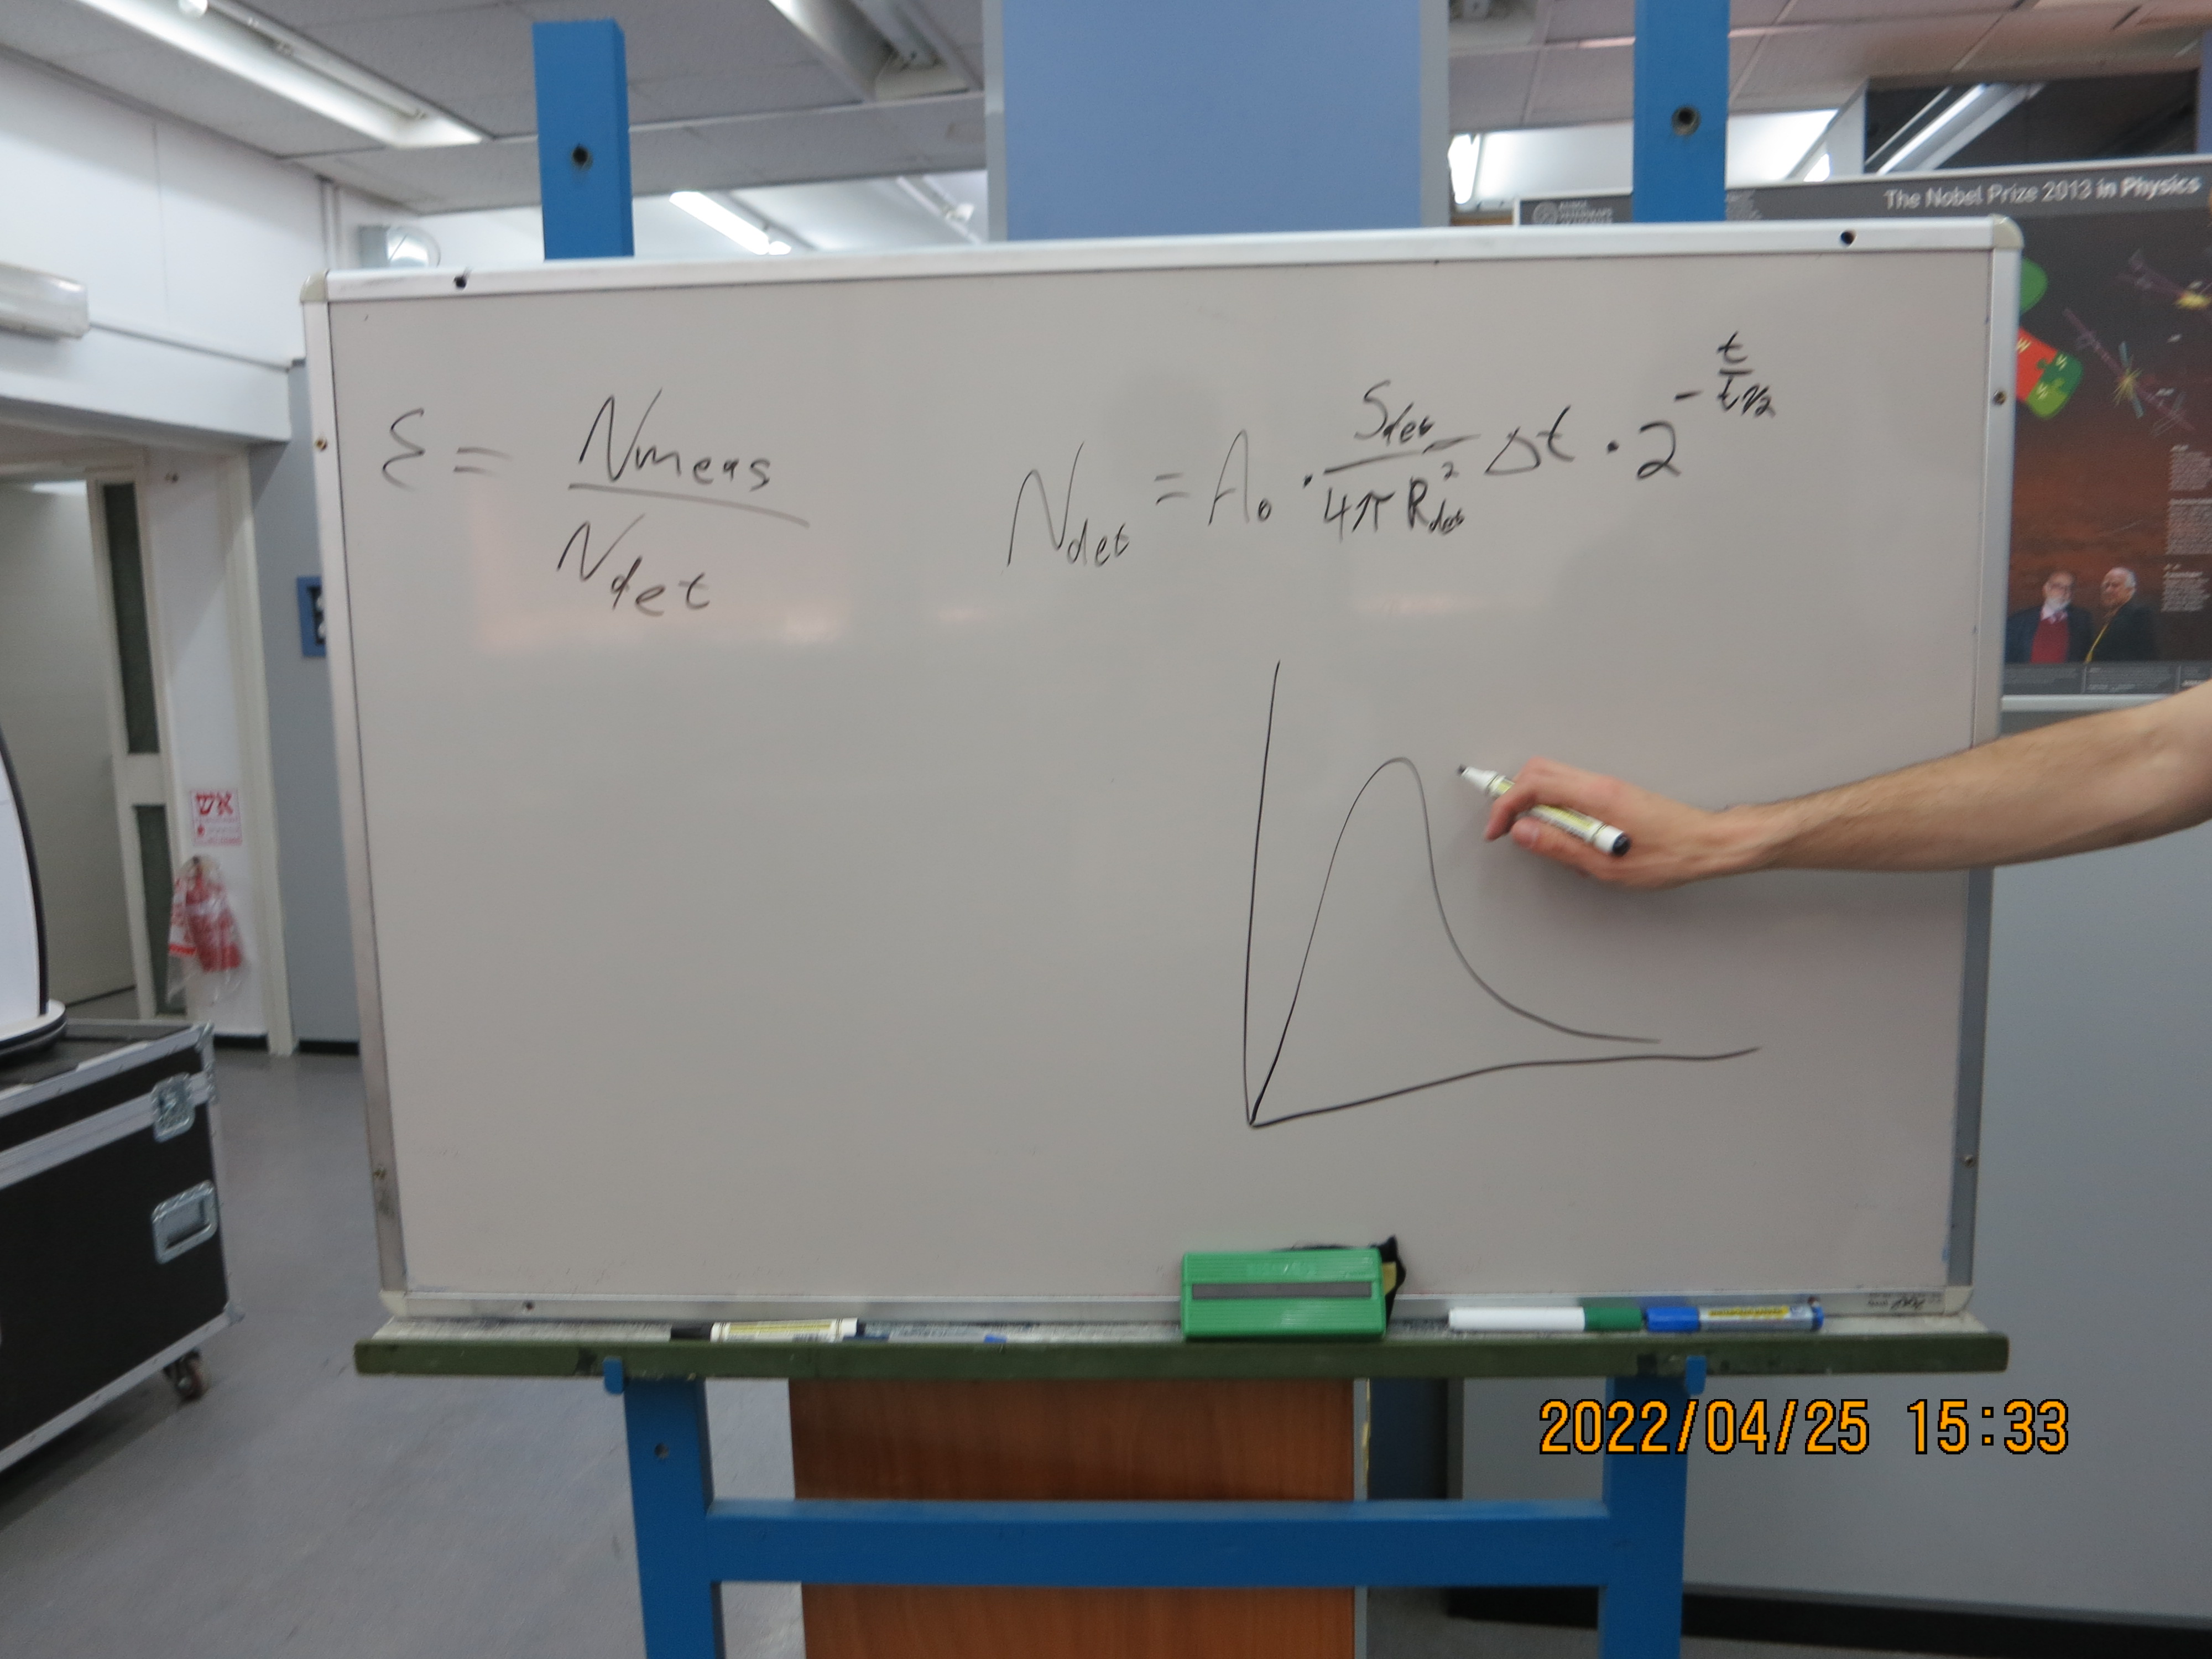 The Nobel Prize 2013 in Physics
ε = Nmeas / Ndet
Ndet = A₀ · Sdet / 4πR²det Δt · 2^(-t/t½)
אש
2022/04/25 15:33